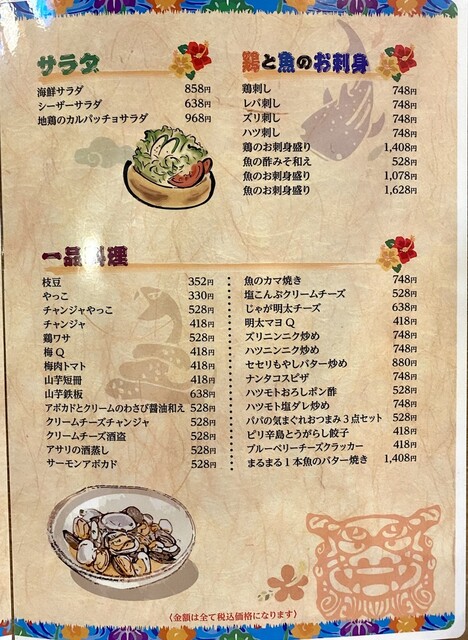 サラダ
海鮮サラダ 858円
シーザーサラダ 638円
地鶏のカルパッチョサラダ 968円
鶏と魚のお刺身
鶏刺し 748円
レバ刺し 748円
ズリ刺し 748円
ハツ刺し 748円
鶏のお刺身盛り 1,408円
魚の酢みそ和え 528円
魚のお刺身盛り 1,078円
魚のお刺身盛り 1,628円
一品料理
枝豆 352円
やっこ 330円
チャンジャやっこ 528円
チャンジャ 418円
鶏ワサ 528円
梅Q 418円
梅肉トマト 418円
山芋短冊 418円
山芋鉄板 638円
アボカドとクリームのわさび醤油和え 528円
クリームチーズチャンジャ 528円
クリームチーズ酒盗 528円
アサリの酒蒸し 528円
サーモンアボカド 528円
魚のカマ焼き 748円
塩こんぶクリームチーズ 528円
じゃが明太チーズ 638円
明太マヨQ 418円
ズリニンニク炒め 748円
ハツニンニク炒め 748円
セセリもやしバター炒め 880円
ナンタコスピザ 748円
ハツモトおろしポン酢 528円
ハツモト塩ダレ炒め 748円
パパの気まぐれおつまみ3点セット 528円
ピリ辛島とうがらし餃子 418円
ブルーベリーチーズクラッカー 418円
まるまる1本魚のバター焼き 1,408円
〈金額は全て税込価格になります〉